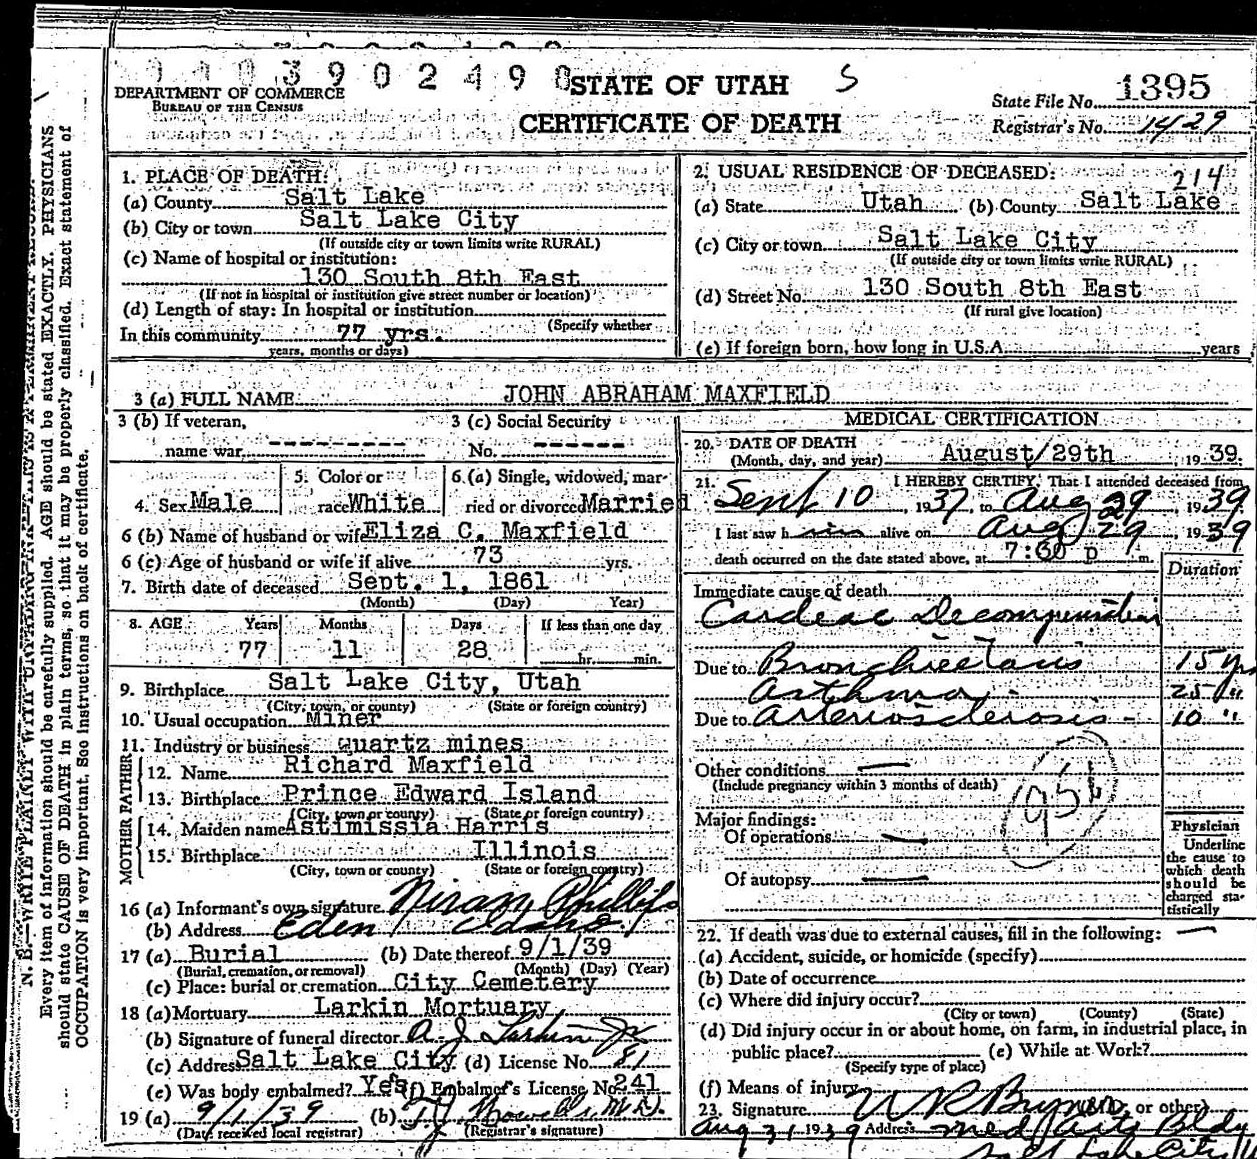 3 9 0 2 4 9 0
STATE OF UTAH S
DEPARTMENT OF COMMERCE
BUREAU OF THE CENSUS
CERTIFICATE OF DEATH
State File No. 1395
Registrar's No. 1429
N. B.—WRITE PLAINLY WITH UNFADING INK—THIS IS A PERMANENT RECORD.
Every item of information should be carefully supplied. AGE should be stated EXACTLY. PHYSICIANS
should state CAUSE OF DEATH in plain terms, so that it may be properly classified. Exact statement of
OCCUPATION is very important. See instructions on back of certificate.
1. PLACE OF DEATH:
(a) County Salt Lake
(b) City or town Salt Lake City
(If outside city or town limits write RURAL)
(c) Name of hospital or institution:
130 South 8th East
(If not in hospital or institution give street number or location)
(d) Length of stay: In hospital or institution
(Specify whether
In this community 77 yrs.
years, months or days)
2. USUAL RESIDENCE OF DECEASED:
214
(a) State Utah (b) County Salt Lake
(c) City or town Salt Lake City
(If outside city or town limits write RURAL)
(d) Street No. 130 South 8th East
(If rural give location)
(e) If foreign born, how long in U.S.A. years
3 (a) FULL NAME JOHN ABRAHAM MAXFIELD
3 (b) If veteran,
name war
3 (c) Social Security
No.
4. Sex Male
5. Color or
race White
6.(a) Single, widowed, mar-
ried or divorced Married
6 (b) Name of husband or wife Eliza C. Maxfield
6 (c) Age of husband or wife if alive 73 yrs.
7. Birth date of deceased Sept. 1, 1861
(Month) (Day) Year)
8. AGE Years Months Days If less than one day
77 11 28 hr. min.
9. Birthplace Salt Lake City, Utah
(City, town, or county) (State or foreign country)
10. Usual occupation Miner
11. Industry or business quartz mines
FATHER
12. Name Richard Maxfield
13. Birthplace Prince Edward Island
(City, town or county) (State or foreign country)
MOTHER
14. Maiden name Astimissia Harris
15. Birthplace Illinois
(City, town or county) (State or foreign country)
16 (a) Informant's own signature Niram Phillips
(b) Address Eden Idaho
17 (a) Burial (b) Date thereof 9/1/39
(Burial, cremation, or removal) (Month) (Day) (Year)
(c) Place: burial or cremation City Cemetery
18 (a) Mortuary Larkin Mortuary
(b) Signature of funeral director A. J. Larkin Jr
(c) Address Salt Lake City (d) License No. 81
(e) Was body embalmed? Yes (f) Embalmer's License No. 241
19 (a) 9/1/39 (b) T J Howells, M.D.
(Date received local registrar) (Registrar's signature)
MEDICAL CERTIFICATION
20. DATE OF DEATH
(Month, day, and year) August/29th, 1939.
21. I HEREBY CERTIFY, That I attended deceased from
Sept 10, 1937, to Aug 29, 1939
I last saw him alive on Aug 29, 1939
death occurred on the date stated above, at 7:60 p m.
Duration
Immediate cause of death
Cardeac Decompensation
Due to Bronchiectasis 15 yrs
Asthma 25 "
Due to Arteriosclerosis 10 "
Other conditions —
(Include pregnancy within 3 months of death)
95b
Major findings:
Of operations —
Of autopsy —
Physician
Underline
the cause to
which death
should be
charged sta-
tistically
22. If death was due to external causes, fill in the following: —
(a) Accident, suicide, or homicide (specify)
(b) Date of occurrence
(c) Where did injury occur?
(City or town) (County) (State)
(d) Did injury occur in or about home, on farm, in industrial place, in
public place? (e) While at Work?
(Specify type of place)
(f) Means of injury
23. Signature (M.D. or other)
Aug 31 1939 Address Med Arts Bldg
Salt Lake City